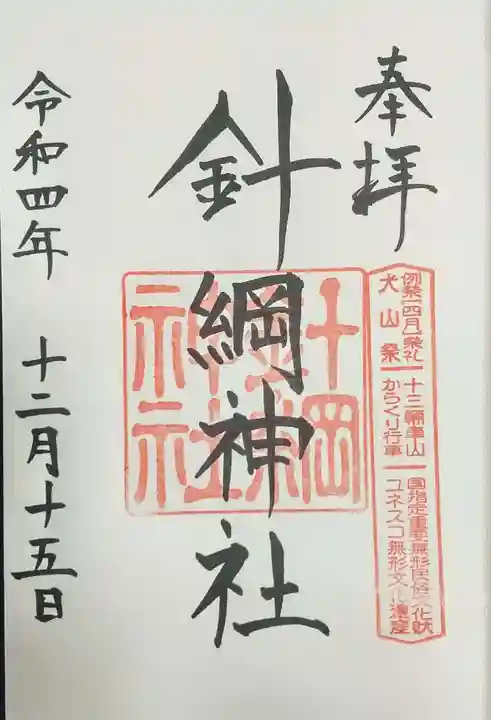 奉拝
例祭(四月)祭礼
犬山祭
十三輛車山
からくり行事
国指定重要無形民俗文化財
ユネスコ無形文化遺産
針綱神社
針綱神社
令和四年 十二月十五日